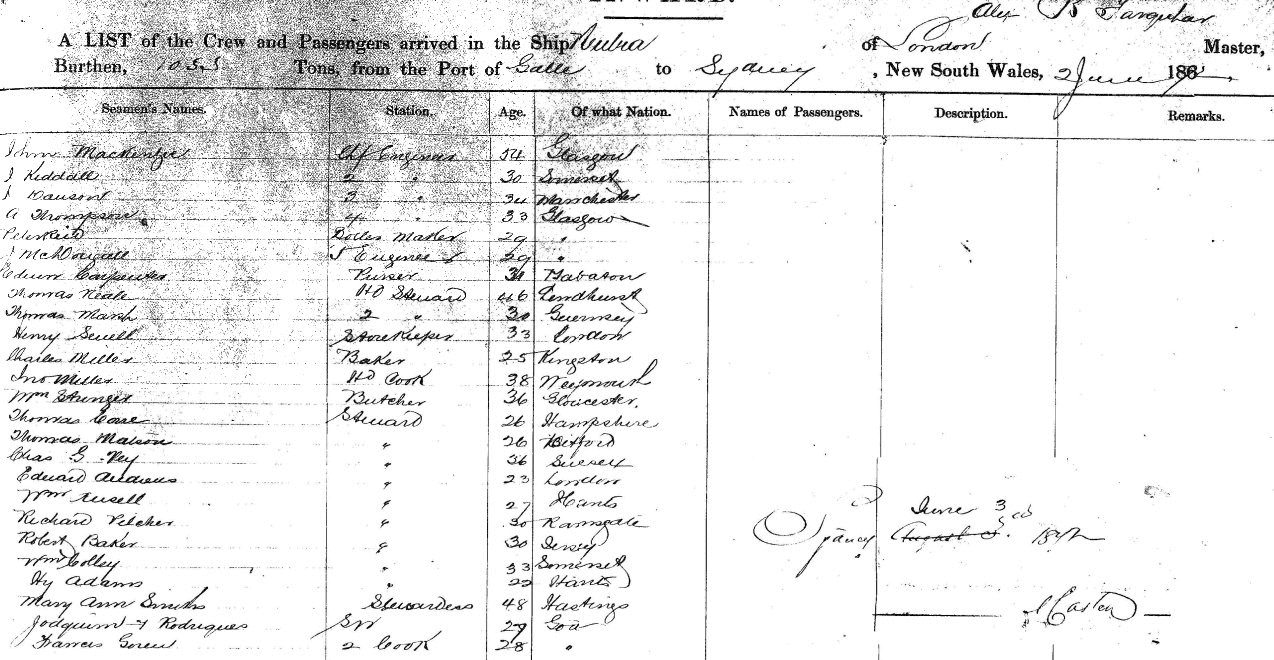 Alex B Farquhar
A LIST of the Crew and Passengers arrived in the Ship Nubia of London Master,
Burthen, 1055 Tons, from the Port of Galle to Sydney, New South Wales, 2 June 187
Seamen's Names. Station. Age. Of what Nation. Names of Passengers. Description. Remarks.
John Mackenzie Chf Engineer 54 Glasgow
J Kiddall 2 " 30 Somerset
J Dawson 3 " 34 Manchester
A Thompson 4 " 33 Glasgow
Peter Boiler Maker 29 "
J McDougall Engineer 29 "
Edwin Carpenter Purser 31
Thomas Neale Hd Steward 46 Lyndhurst
Thomas Marsh 2 " 30 Guernsey
Henry Sewell Storekeeper 33 London
Charles Miller Baker 25 Kingston
Jno Miller Hd Cook 38 Weymouth
Wm Stringer Butcher 36 Gloucester
Thomas Case Steward 26 Hampshire
Thomas Matson " 26
Chas G. Ney " 36 Surrey
Edward Andrews " 23 London
Wm " 27 Hants
Richard Pilcher " 30 Ramsgate
Robert Baker " 30 Jersey
Wm Colley " 33 Somerset
Hy Adams " 22 Hants
Mary Ann Smith Stewardess 48 Hastings
Rodrigues 29 Goa
Francis 2 Cook 28 "
Sydney June 3rd August 187